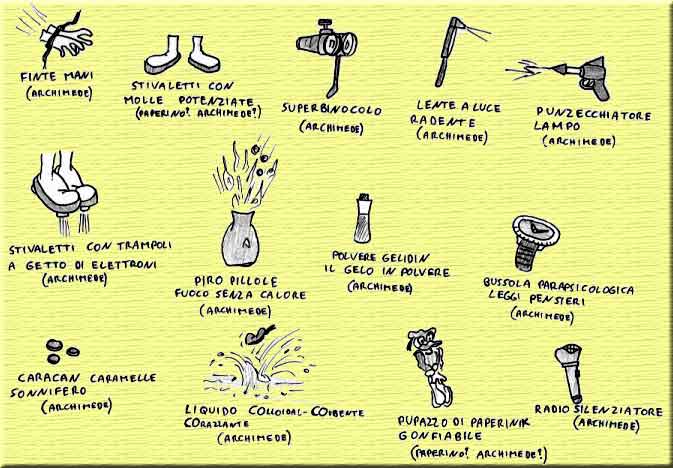 FINTE MANI
(ARCHIMEDE)
STIVALETTI CON
MOLLE POTENZIATE
(PAPERINO? ARCHIMEDE?)
SUPERBINOCOLO
(ARCHIMEDE)
LENTE A LUCE
RADENTE
(ARCHIMEDE)
PUNZECCHIATORE
LAMPO
(ARCHIMEDE)
STIVALETTI CON TRAMPOLI
A GETTO DI ELETTRONI
(ARCHIMEDE)
PIRO PILLOLE
FUOCO SENZA CALORE
(ARCHIMEDE)
POLVERE GELIDIN
IL GELO IN POLVERE
(ARCHIMEDE)
BUSSOLA PARAPSICOLOGICA
LEGGI PENSIERI
(ARCHIMEDE)
CARACAN CARAMELLE
SONNIFERO
(ARCHIMEDE)
LIQUIDO COLLOIDAL-COIBENTE
CORAZZANTE
(ARCHIMEDE)
PUPAZZO DI PAPERINIK
GONFIABILE
(PAPERINO? ARCHIMEDE?)
RADIO SILENZIATORE
(ARCHIMEDE)